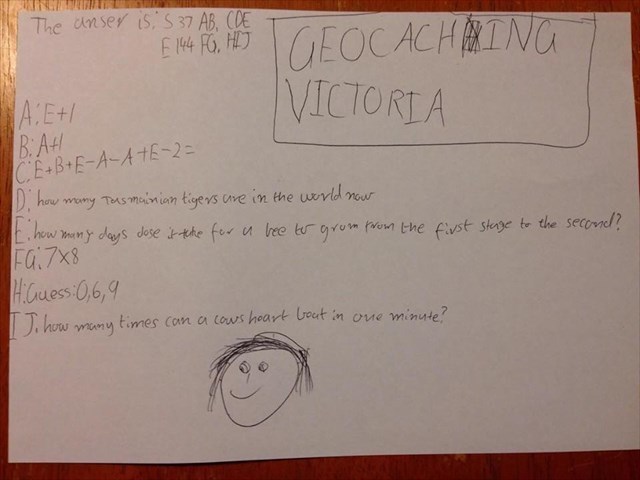 The anser is: S 37 AB, CDE
E 144 FG, HIJ
GEOCACHING
VICTORIA
A: E+1
B: A+1
C: E+B+E-A-A+E-2=
D: how many Tasmainian tigers are in the world now
E: how many days dose it take for a bee to grow from the first stage to the second?
FG: 7x8
H: Guess: 0,6,9
IJ. how many times can a cows heart beat in one minute?